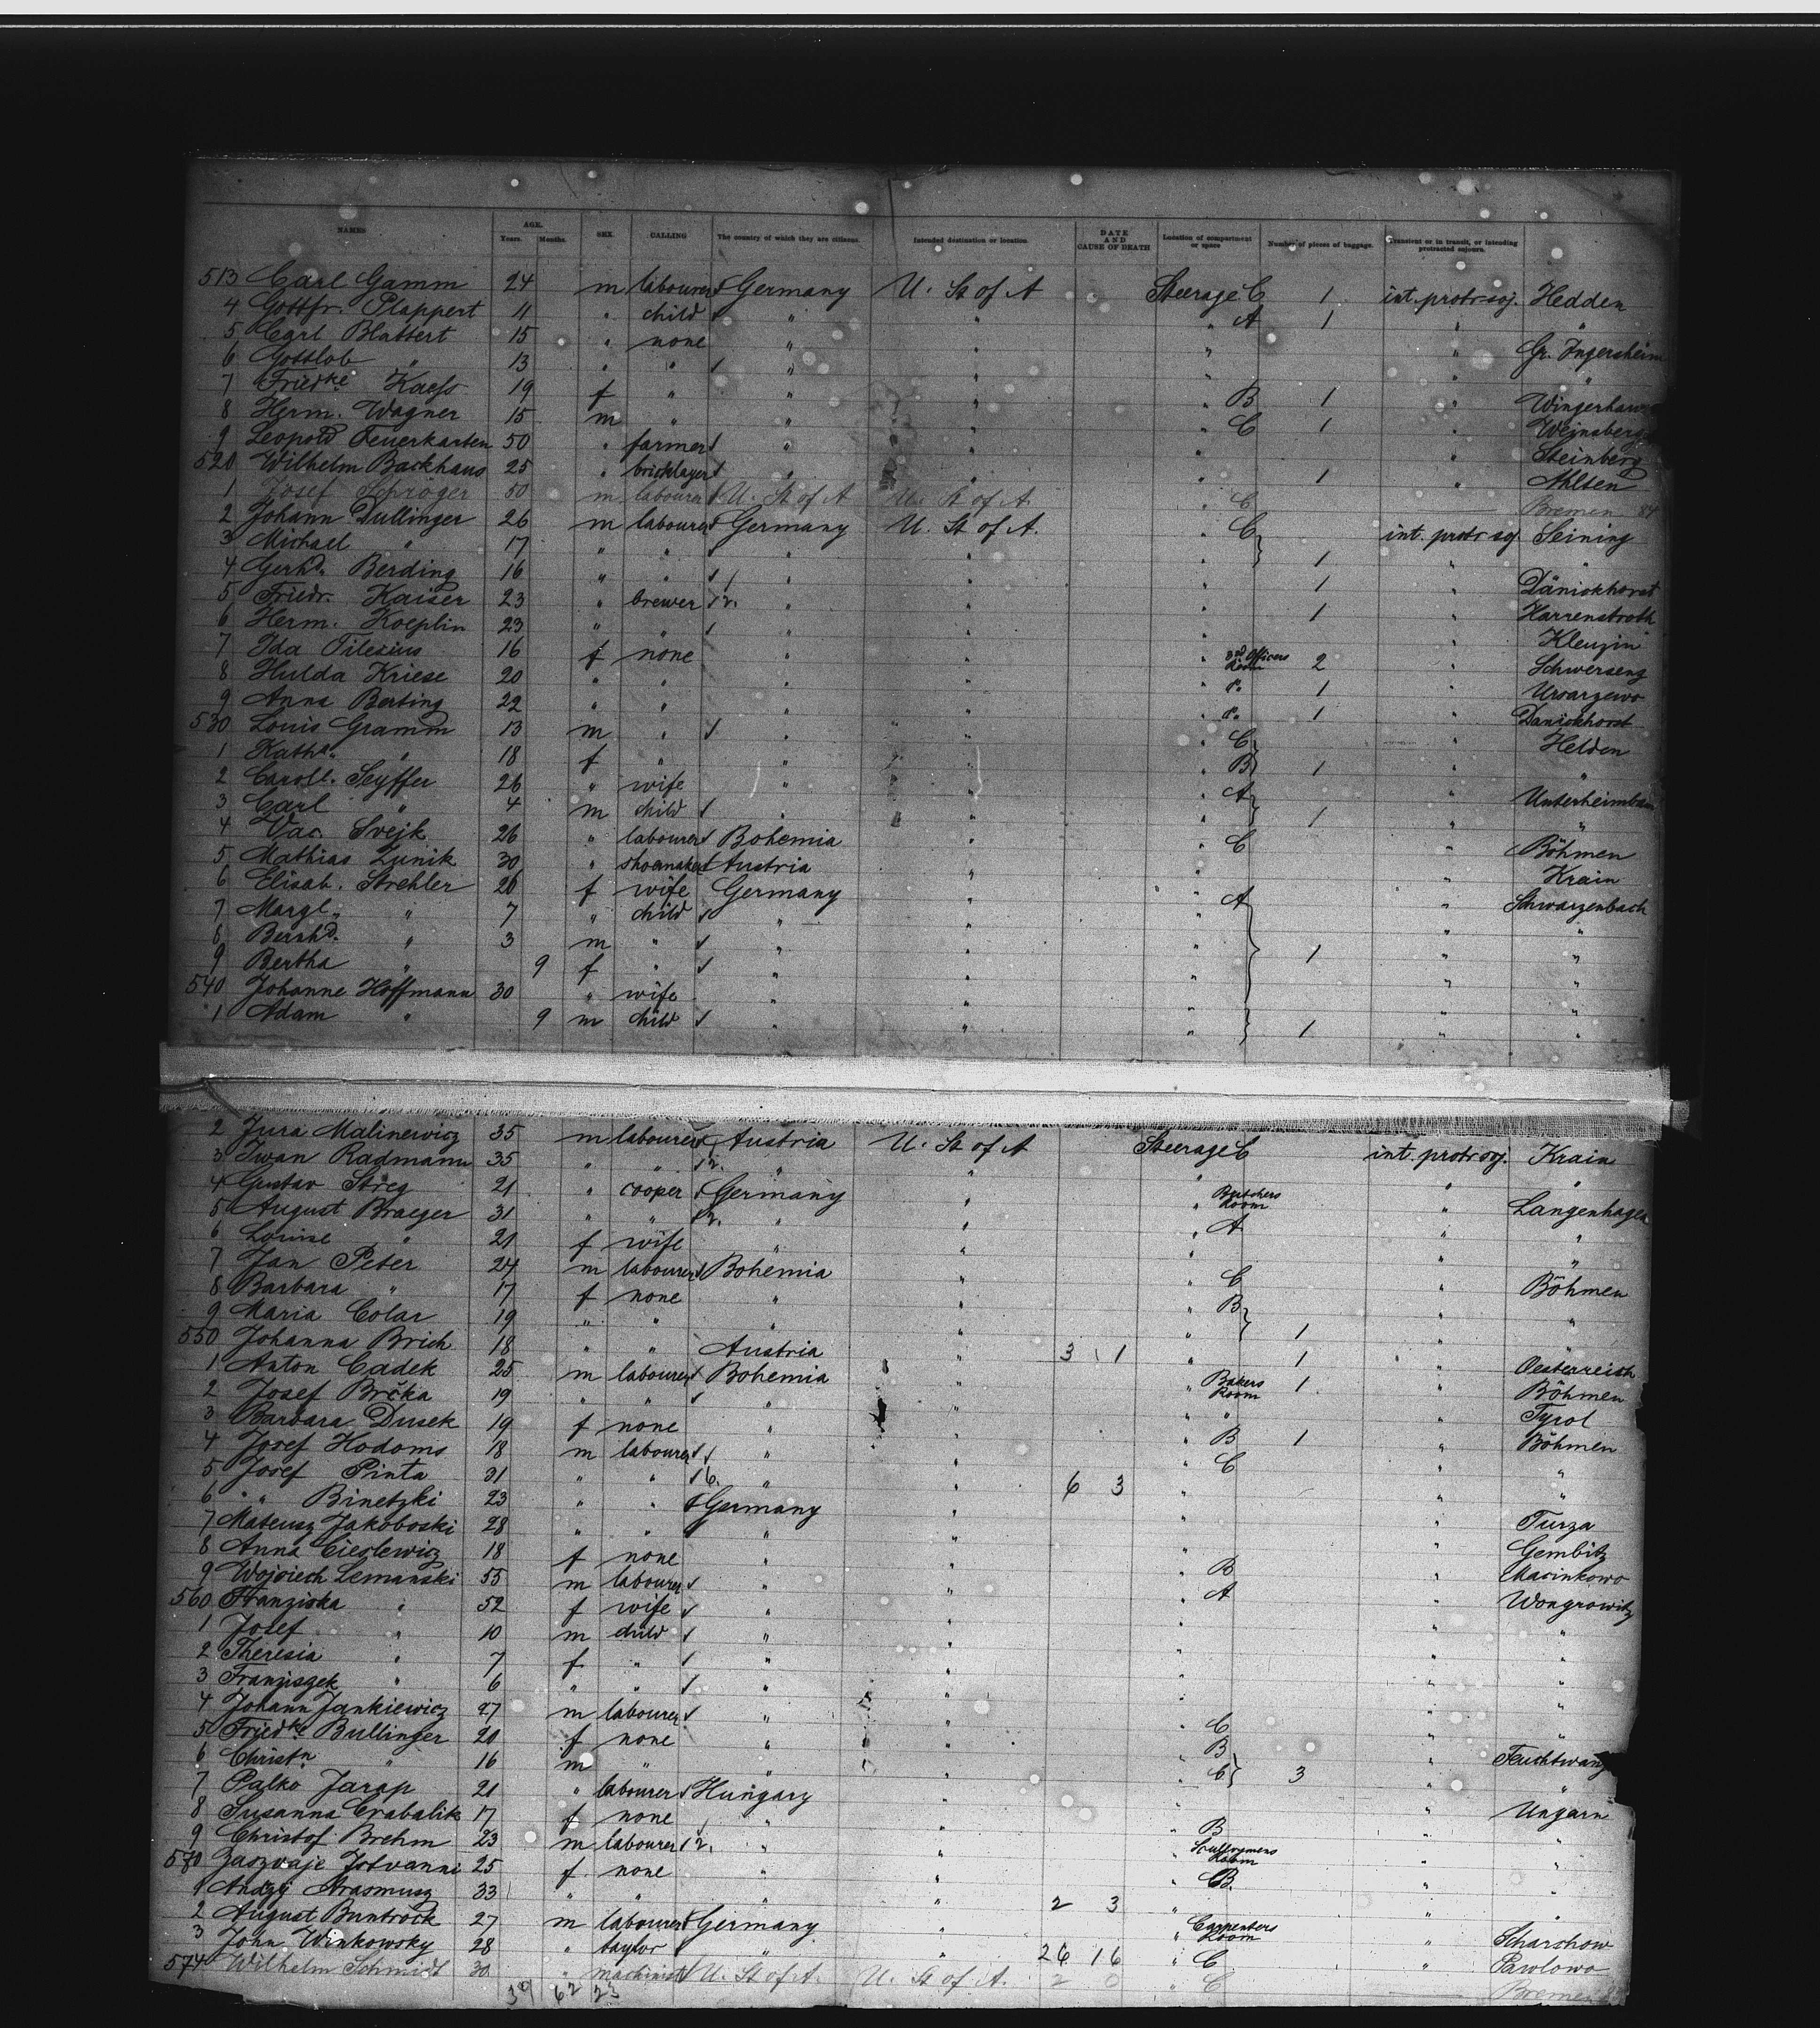 NAMES AGE. Years. Months. SEX. CALLING The country of which they are citizens. Intended destination or location. DATE AND CAUSE OF DEATH Location of compartment or space Number of pieces of baggage. Transient or in transit, or intending protracted sojourn.
513 Carl Gamm 24 m labourer Germany U. St of A Steerage C 1 int. protr soj. Hedden
4 Gottfr. Plappert 11 " child " " " A 1 " "
5 Carl Blattert 15 " none " " " " Gr. Ingersheim
6 Gottlob " 13 " " " " " " "
7 Friedke Kaess 19 f " " " " B 1 "
8 Herm. Wagner 15 m " " " " C 1 " Weinsberg
9 Leopold Feuerkarten 50 " farmer " " " " Steinberg
520 Wilhelm Backhaus 25 " bricklayer " " " 1 " Ahlten
1 Josef Schröger 50 m labourer U. St of A U. St of A. " C Bremen 84
2 Johann Dullinger 26 m labourer Germany U. St of A. " C int. protr soj Seining
3 Michael " 17 " " " " " 1 " "
4 Gerhd. Berding 16 " " " " " 1 " Dänickhorst
5 Friedr. Kaiser 23 " brewer 2. " " " 1 " Harrenstroth
6 Herm. Koeplin 23 " " " " " " Klenzin
7 Ida Tilesius 16 f none " " " 3rd Officers Room 2 " Schwersenz
8 Hulda Kriese 20 " " " " " " 1 "
9 Anna Berting 22 " " " " " " 1 " Danickhorst
530 Louis Gramm 13 m " " " " C " Helden
1 Kathe. " 18 f " " " " B 1 " "
2 Caroll. Seyffer 26 " wife " " " A "
3 Carl " 4 m child " " " 1 " "
4 Vac. Svejk 26 " labourer Bohemia " " C " Böhmen
5 Mathias Zunik 30 " shoemaker Austria " " " Krain
6 Elisab. Strehler 26 f wife Germany " " A " Schwarzenbach
7 Margt. " 7 " child " " " " "
8 Bernhd. " 3 m " " " " 1 " "
9 Bertha " 9 f " " " " " "
540 Johanne Hoffmann 30 " wife " " " " "
1 Adam " 9 m child " " " 1 " "
2 Jura Malinewicz 35 m labourer Austria U. St of A Steerage C int. protr soj. Krain
3 Iwan Radmann 35 " " 2. " " " " "
4 Gustav Streg 21 " cooper Germany " " Butchers Room " Langenhagen
5 August Braeger 31 " " 2. " " " A " "
6 Louise " 21 f wife " " " " "
7 Jan Peter 24 m labourer Bohemia " " C " Böhmen
8 Barbara " 17 f none " " " B " "
9 Maria Colar 19 " " " " " 1 " "
550 Johanna Brich 18 " " Austria " 3 1 " 1 " Oesterreich
1 Anton Cadek 25 m labourer Bohemia " " Bakers Room 1 " Böhmen
2 Josef Brčka 19 " " " " " " " Tyrol
3 Barbara Dusek 19 f none " " " B 1 " Böhmen
4 Josef Hodoms 18 m labourer " " " C " "
5 Josef Pinta 31 " " 6. " " 6 3 " " "
6 " Binetzki 23 " " Germany " " " Turza
7 Mateusz Jakoboski 28 " " " " " " Gembitz
8 Anna Cieslewicz 18 f none " " " B " Marinkowo
9 Wojciech Lemanski 55 m labourer " " " A " Wongrowitz
560 Franziska " 52 f wife " " " " "
1 Josef " 10 m child " " " " "
2 Theresia " 7 f " " " " " "
3 Franziszek " 6 " " " " " " "
4 Johann Jankiewicz 27 m labourer " " " C " "
5 Friedke. Bullinger 20 f none " " " B " Feuchtwang
6 Christn " 16 m " " " " C 3 " "
7 Palko Jarap 21 " labourer Hungary " " " Ungarn
8 Susanna Crabalik 17 f none " " " B " "
9 Christof Brehm 23 m labourer 2. " " " Room " "
570 Zaszvaje Istvanne 25 f none " " " B. " "
1 Andzy Arasmusz 33 " " " " 2 3 " " "
2 August Buntrock 27 m labourer Germany " " Carpenters Room " Scharchow
3 John Winkowsky 28 " taylor " " 26 16 " C " Pawlowo
574 Wilhelm Schmidt 30 " machinist U. St of A. U. St of A. 2 0 " C Bremen
62 23